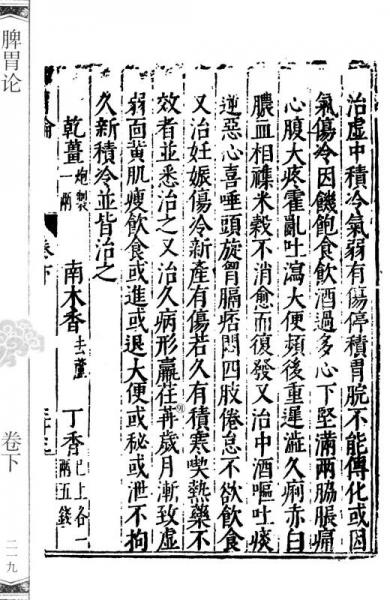 治虛中積冷氣弱有傷停積胃脘不能傳化或因
氣傷冷因饑飽食飲酒過多心下堅滿兩脇脹痛
心腹大疼霍亂吐瀉大便頻後重遲澁久痢赤白
膿血相襍米穀不消愈而復發又治中酒嘔吐痰
逆惡心喜唾頭旋胷膈痞悶四肢倦怠不欲飲食
又治妊娠傷冷新產有傷若久有積寒喫熱藥不
效者並悉治之又治久病形羸荏苒歲月漸致虛
弱面黃肌瘦飲食或進或退大便或秘或泄不拘
久新積冷並皆治之
乾薑炮製一兩 南木香去蘆 丁香已上各一兩五錢
卷下
脾胃论
卷下
二一九